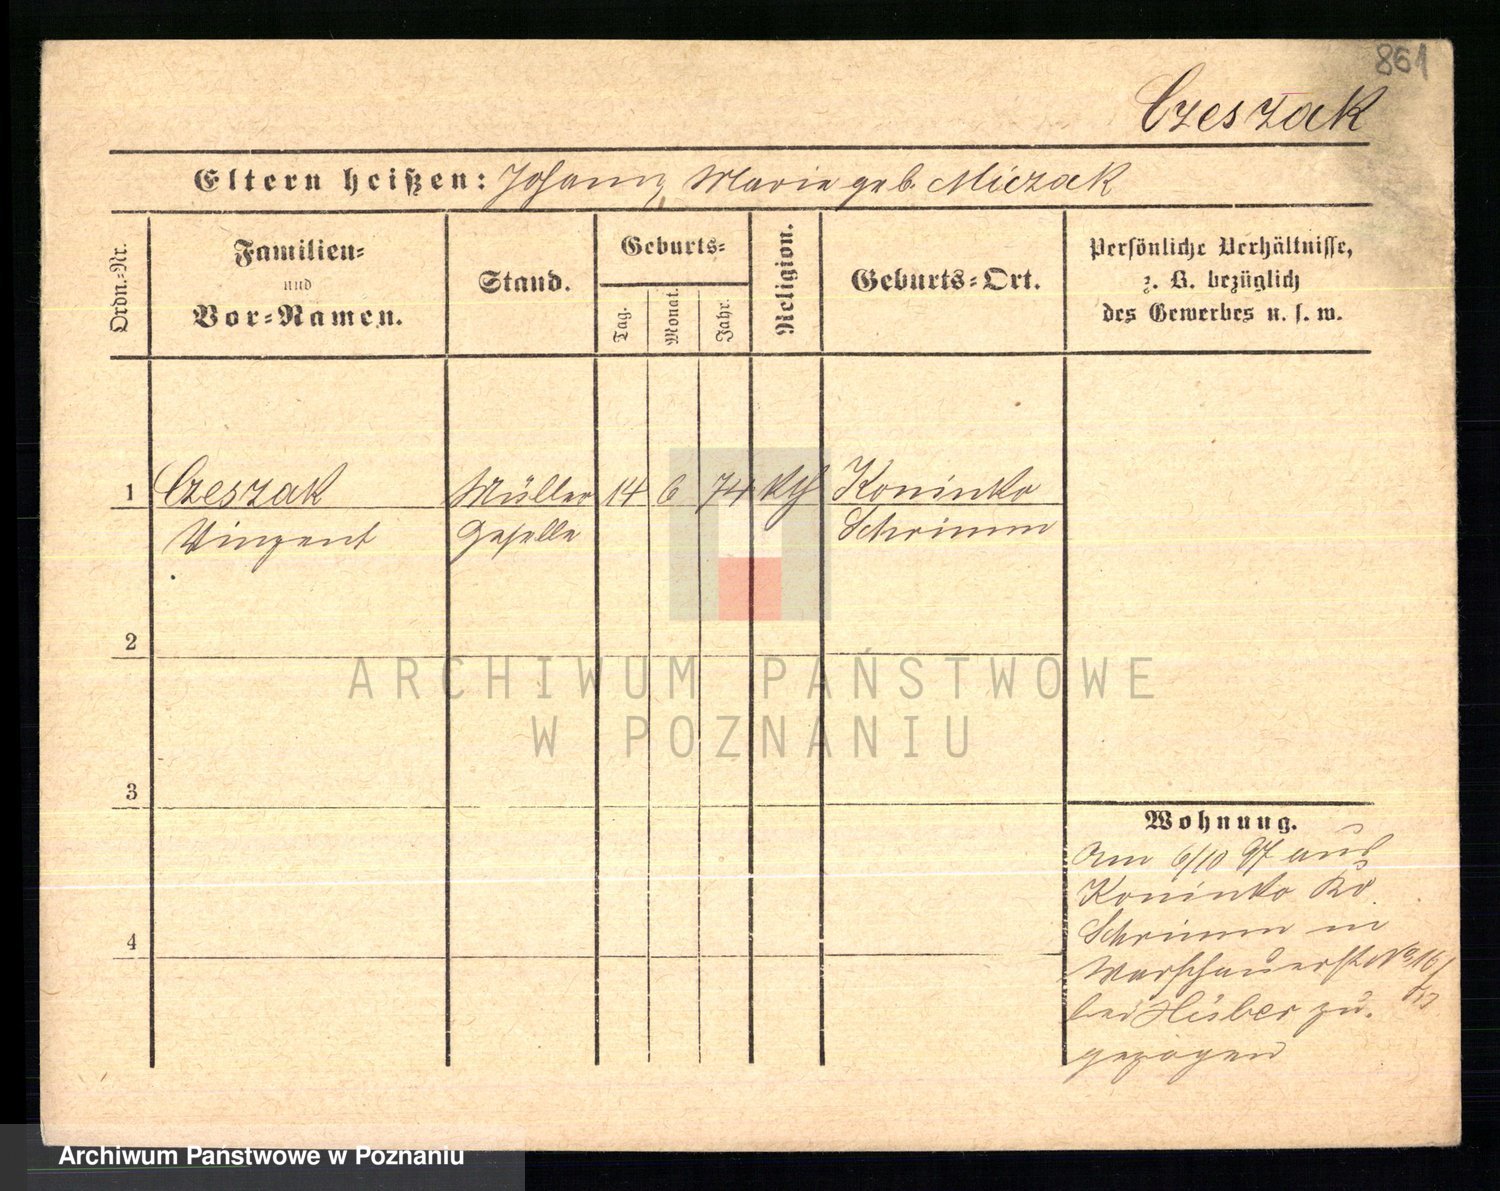 861
Czeszak
Eltern heißen: Johann, Marie geb. Miczak
Ordn.=Nr.
Familien=
und
Vor=Namen.
Stand.
Geburts=
Tag.
Monat.
Jahr.
Religion.
Geburts=Ort.
Persönliche Verhältnisse,
z. B. bezüglich
des Gewerbes u. s. w.
1 Czeszak Müller 14 6 74 kth Koninko
Vinzent Geselle Schrimm
2
ARCHIWUM PAŃSTWOWE
W POZNANIU
3
Wohnung.
Am 6/10 97 aus
Koninko Kr.
Schrimm in
4
Warschauerst No 16/
bei zu=
gezogen
Archiwum Państwowe w Poznaniu